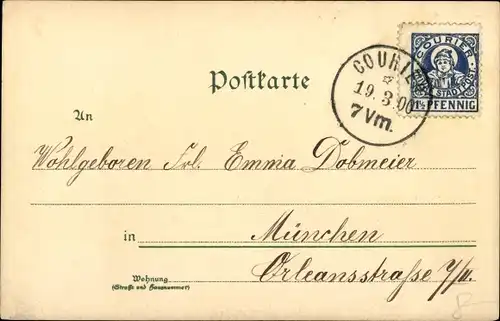 COURIER
STADTPOST
1½ PFENNIG
COURIER
19. 3. 00
7 Vm.
Postkarte
An
Wohlgeboren Frl. Emma Dobmeier
in München
Wohnung Orleansstraße 7/II.
(Straße und Hausnummer)